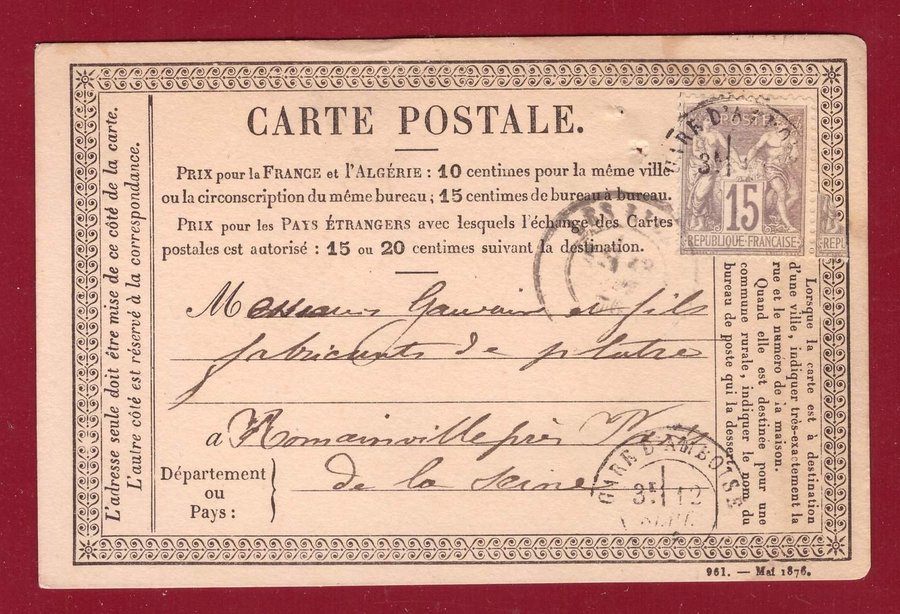 CARTE POSTALE.
PRIX pour la FRANCE et l'ALGÉRIE : 10 centimes pour la même ville
ou la circonscription du même bureau ; 15 centimes de bureau à bureau.
PRIX pour les PAYS ÉTRANGERS avec lesquels l'échange des Cartes
postales est autorisé : 15 ou 20 centimes suivant la destination.
L'adresse seule doit être mise de ce côté de la carte.
L'autre côté est réservé à la correspondance.
POSTE
15
REPUBLIQUE FRANÇAISE
REPU
GARE D'AMBO
3E
Messieurs Gauvain et fils
fabricants de platre
a Romainville près
de la Seine
Département
ou
Pays :
GARE D'AMBOISE
3E 12
Lorsque la carte est à destination
d'une ville, indiquer très-exactement la
rue et le numéro de la maison.
Quand elle est destinée pour une
commune rurale, indiquer le nom du
bureau de poste qui la dessert.
961. — Mai 1876.